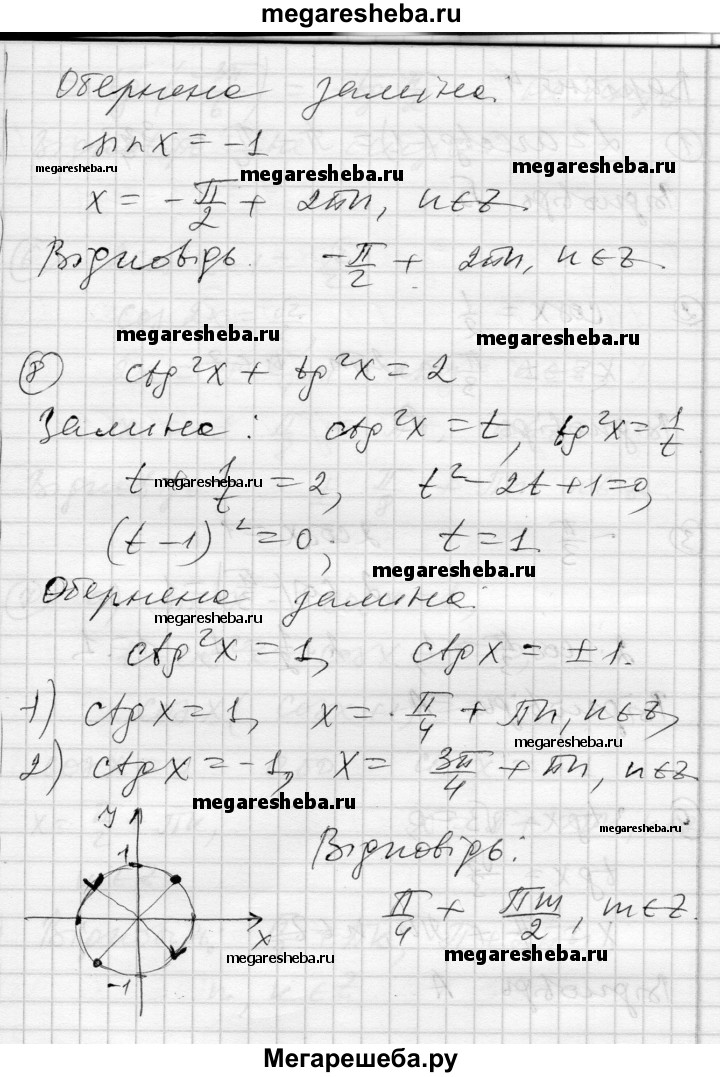 megaresheba.ru
Обернена заміна:
sin x = -1
megaresheba.ru megaresheba.ru megaresheba.ru
x = -π/2 + 2πn, n∈Z.
Відповідь. -π/2 + 2πn, n∈Z.
megaresheba.ru megaresheba.ru
8) ctg²x + tg²x = 2
Замина: ctg²x = t, tg²x = 1/t
megaresheba.ru
t + 1/t = 2, t² - 2t + 1 = 0,
(t - 1)² = 0; t = 1.
megaresheba.ru
Обернена замина:
megaresheba.ru
ctg²x = 1, ctg x = ±1.
1) ctg x = 1, x = π/4 + πn, n∈Z,
megaresheba.ru
2) ctg x = -1, x = 3π/4 + πn, n∈Z
megaresheba.ru
y
1
x
-1
megaresheba.ru
Відповідь:
π/4 + πm/2, m∈Z.
megaresheba.ru megaresheba.ru
Мегарешеба.ру